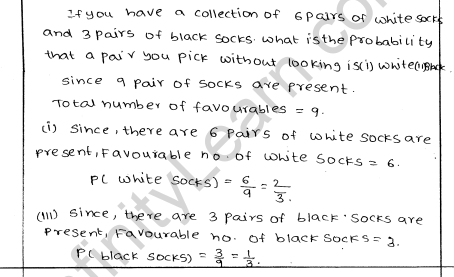 If you have a collection of 6 pairs of white socks
and 3 pairs of black socks. what is the probability
that a pair you pick without looking is (i) white (ii) Black.
since 9 pair of socks are present.
Total number of favourables = 9.
(i) since, there are 6 pairs of white socks are
present, Favourable no of white socks = 6.
P( white socks) = 6/9 = 2/3.
(iii) since, there are 3 pairs of black socks are
present, Favourable no. of black socks = 3.
P( black socks) = 3/9 = 1/3.